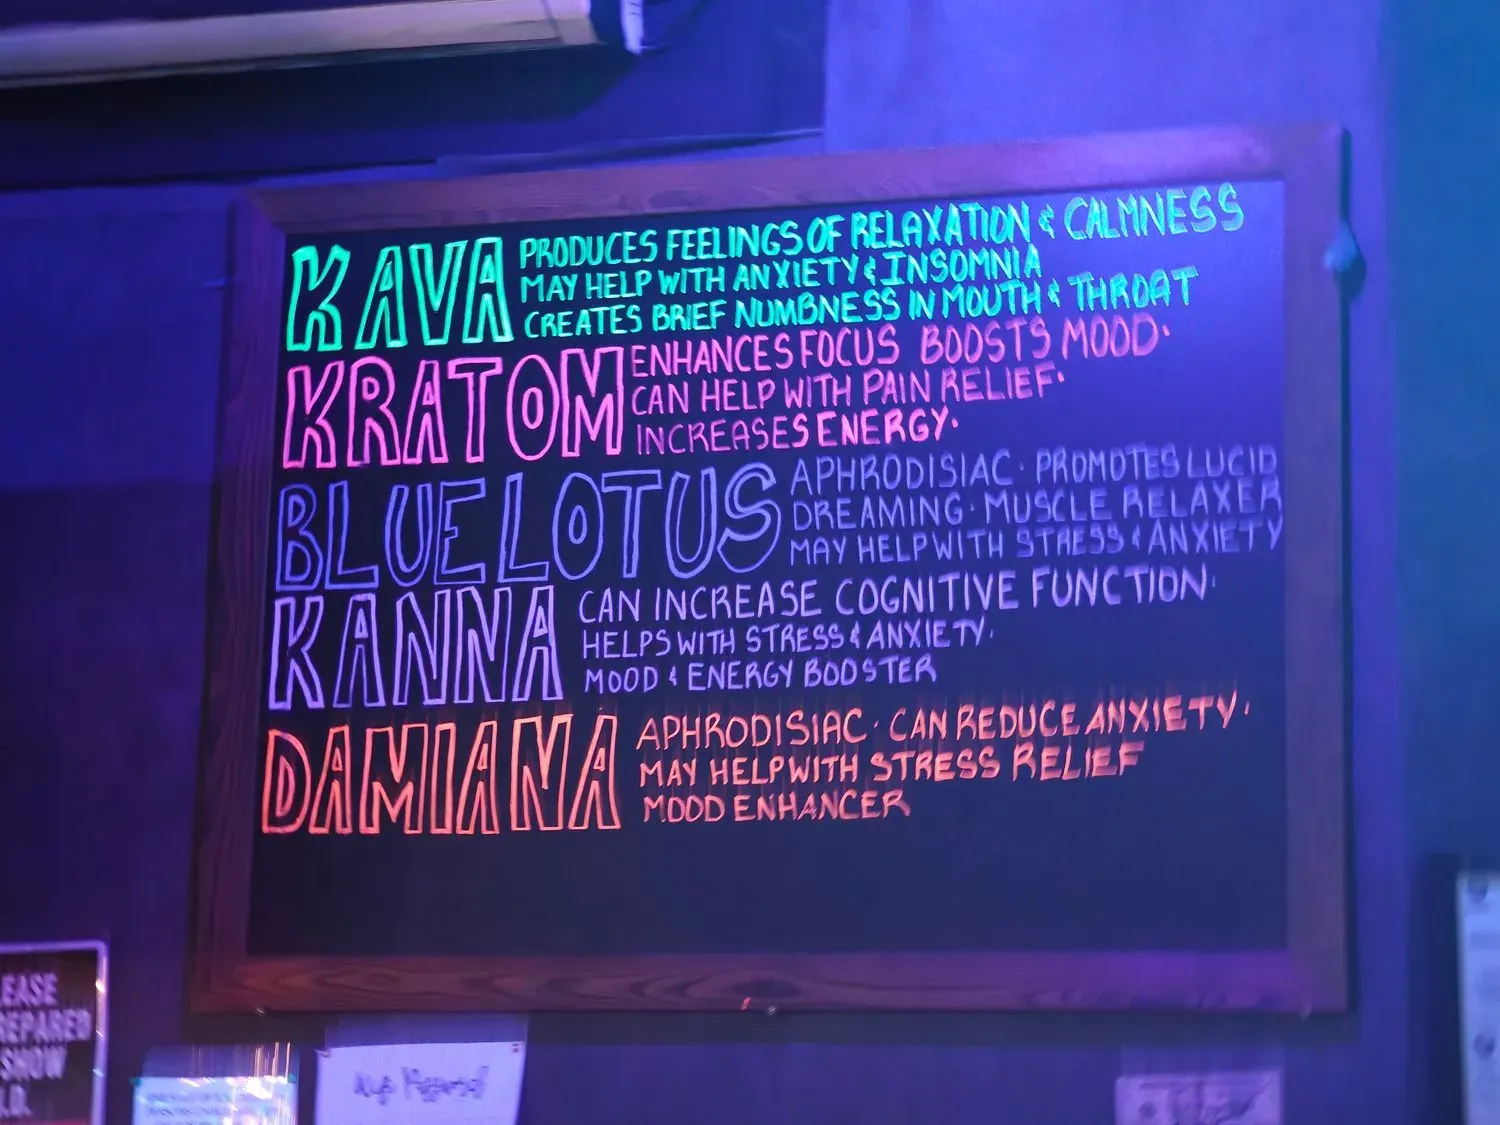 KAVA
PRODUCES FEELINGS OF RELAXATION & CALMNESS
MAY HELP WITH ANXIETY & INSOMNIA
CREATES BRIEF NUMBNESS IN MOUTH & THROAT
KRATOM
ENHANCES FOCUS BOOSTS MOOD·
CAN HELP WITH PAIN RELIEF·
INCREASES ENERGY·
BLUE LOTUS
APHRODISIAC · PROMOTES LUCID
DREAMING · MUSCLE RELAXER
MAY HELP WITH STRESS & ANXIETY
KANNA
CAN INCREASE COGNITIVE FUNCTION·
HELPS WITH STRESS & ANXIETY·
MOOD & ENERGY BOOSTER
DAMIANA
APHRODISIAC · CAN REDUCE ANXIETY·
MAY HELP WITH STRESS RELIEF
MOOD ENHANCER
EASE
REPARED
SHOW
.D.